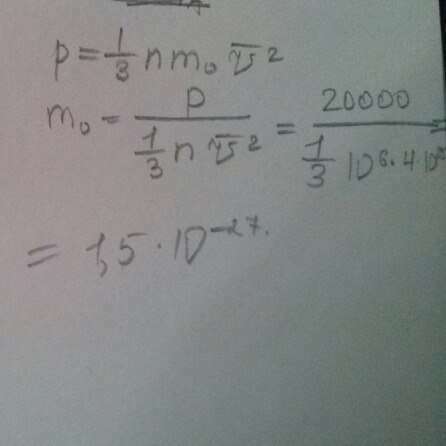 p = 1/3 n m₀ v̅²
m₀ = p / (1/3 n v̅²) = 20000 / (1/3 10⁶·4·10
= 1,5 · 10⁻²⁷.